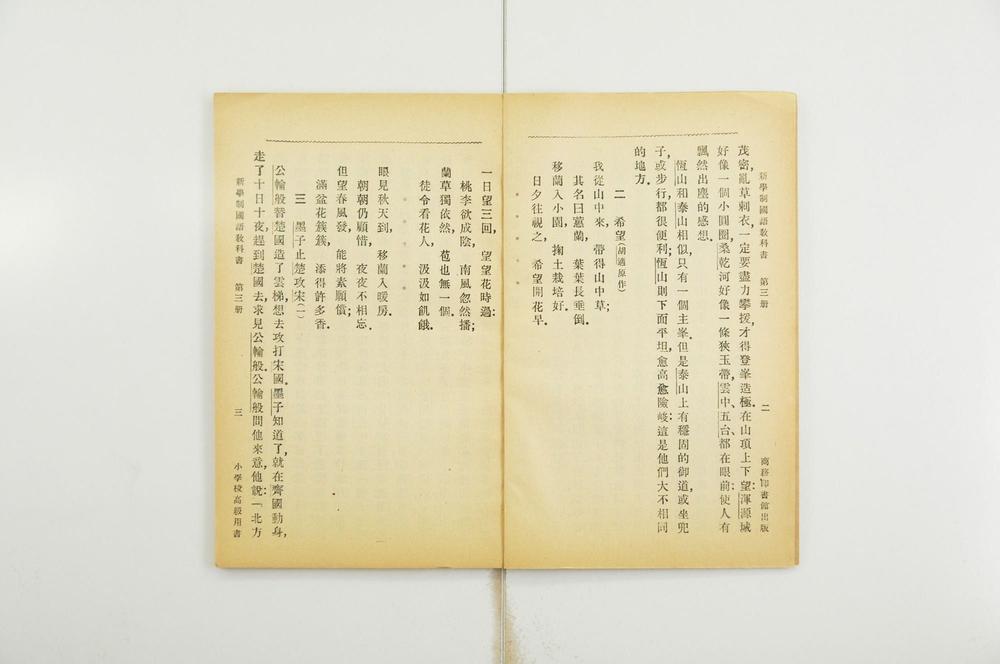 新學制國語教科書　第三册　二　商務印書館出版
茂密，亂草刺衣，一定要盡力攀援，才得登峯造極。在山頂上下望：渾源城
好像一個小圓圈，桑乾河好像一條狹玉帶，雲中、五台，都在眼前，使人有
飄然出塵的感想。
恆山和泰山相似，只有一個主峯。但是泰山上有穩固的御道，或坐兜
子，或步行，都很便利；恆山則下面平坦，愈高愈險峻：這是他們大不相同
的地方。
二　希望（胡適原作）
我從山中來，帶得山中草；
其名曰蕙蘭，葉葉長垂倒。
移蘭入小園，掬土栽培好。
日夕往視之，希望開花早。
一日望三回，望望花時過：
桃李欲成陰，南風忽然播；
蘭草獨依然，苞也無一個。
徒令看花人，汲汲如飢餓。
眼見秋天到，移蘭入暖房。
朝朝仍顧惜，夜夜不相忘。
但望春風發，能將素願償；
滿盆花簇簇，添得許多香。
三　墨子止楚攻宋（一）
公輸般替楚國造了雲梯，想去攻打宋國。墨子知道了，就在齊國動身，
走了十日十夜，趕到楚國去，求見公輸般。公輸般問他來意，他說：「北方
新學制國語教科書　第三册　三　小學校高級用書